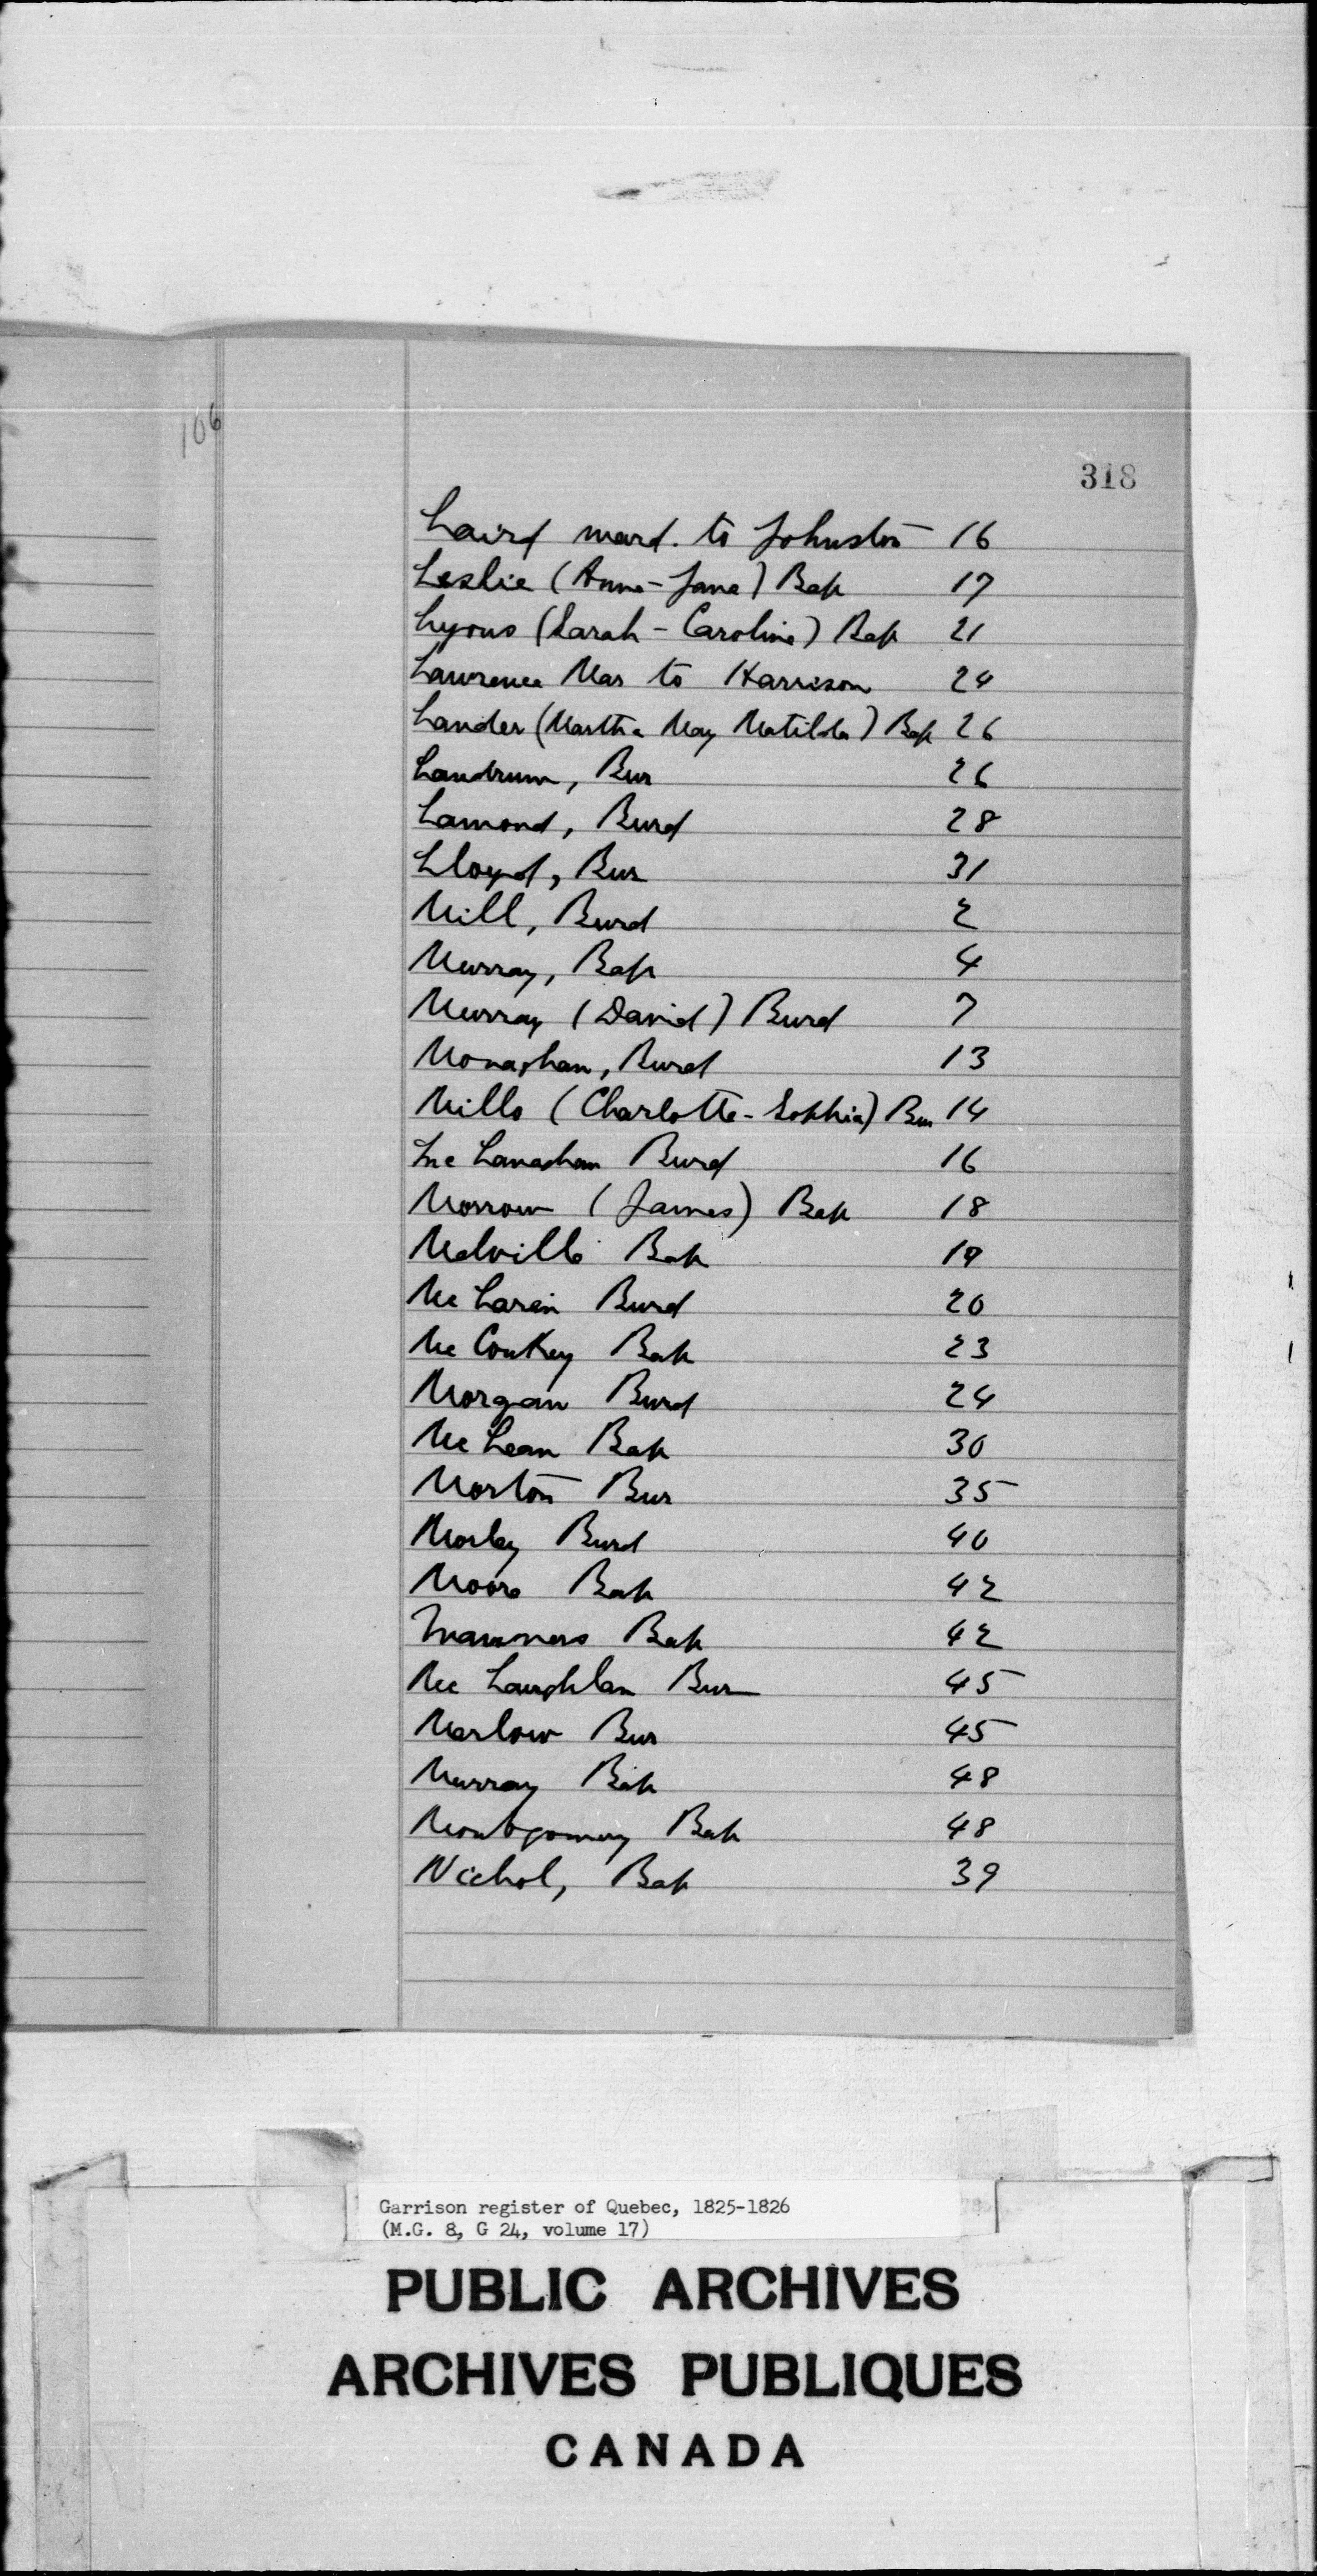 106
318
Laird mard. to Johnston 16
Leslie (Anne-Jane) Bap 17
Lyons (Sarah-Caroline) Bap 21
Lawrence Mar to Harrison 24
Lander (Martha May Matilda) Bap 26
Landrum, Bur 26
Lamond, Burd 28
Lloyd, Bur 31
Mill, Burd 2
Murray, Bap 4
Murray (David) Burd 7
Monaghan, Burd 13
Mills (Charlotte-Sophia) Bur 14
Mc Lanaghan Burd 16
Morrow (James) Bap 18
Melville Bap 19
Mc Laren Burd 20
Mc Conkey Bap 23
Morgan Burd 24
Mc Lean Bap 30
Morton Bur 35
Morley Burd 40
Moore Bap 42
Manners Bap 42
Mc Laughlan Bur 45
Marlow Bur 45
Murray Bap 48
Montgomery Bap 48
Nichol, Bap 39
Garrison register of Quebec, 1825-1826
(M.G. 8, G 24, volume 17)
PUBLIC ARCHIVES
ARCHIVES PUBLIQUES
CANADA